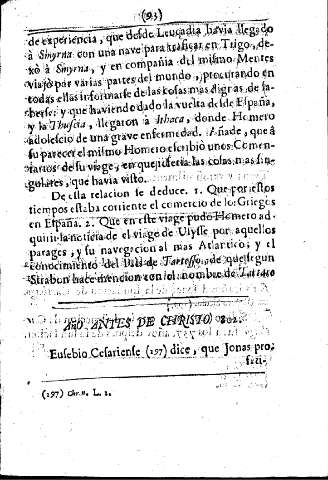 (93)
de experiencia, que desde Leucadia havia llegado
à Smyrna con una nave para traficar en Trigo, de-
xò à Smyrna, y en compañia del mismo Mentes
viajò por varias partes del mundo, procurando en
todas ellas informarse de las cosas mas dignas de sa-
berse: y que haviendo dado la vuelta desde España,
y la Thuscia, llegaron à Ithaca, donde Homero
adolesciò de una grave enfermedad. Añade, que à
su parecer el mismo Homero escribiò unos Comen-
tarios de su viage, en que diseria las cosas mas sin-
gulares, que havia visto.
De esta relacion se deduce. 1. Que por estos
tiempos estaba corriente el comercio de los Griegos
en España. 2. Que en este viage pudo Homero ad-
quirir la noticia de el viage de Ulysse por aquellos
parages, y su navegacion al mas Atlantico; y el
conocimiento del Pais de Tartesso, de que segun
Strabon hace mencion con el nombre de Tartaro
AÑO ANTES DE CHRISTO 802.
Eusebio Cesariense (197) dice, que Jonas pro-
feti-
(197) Chr. n. L. 1.